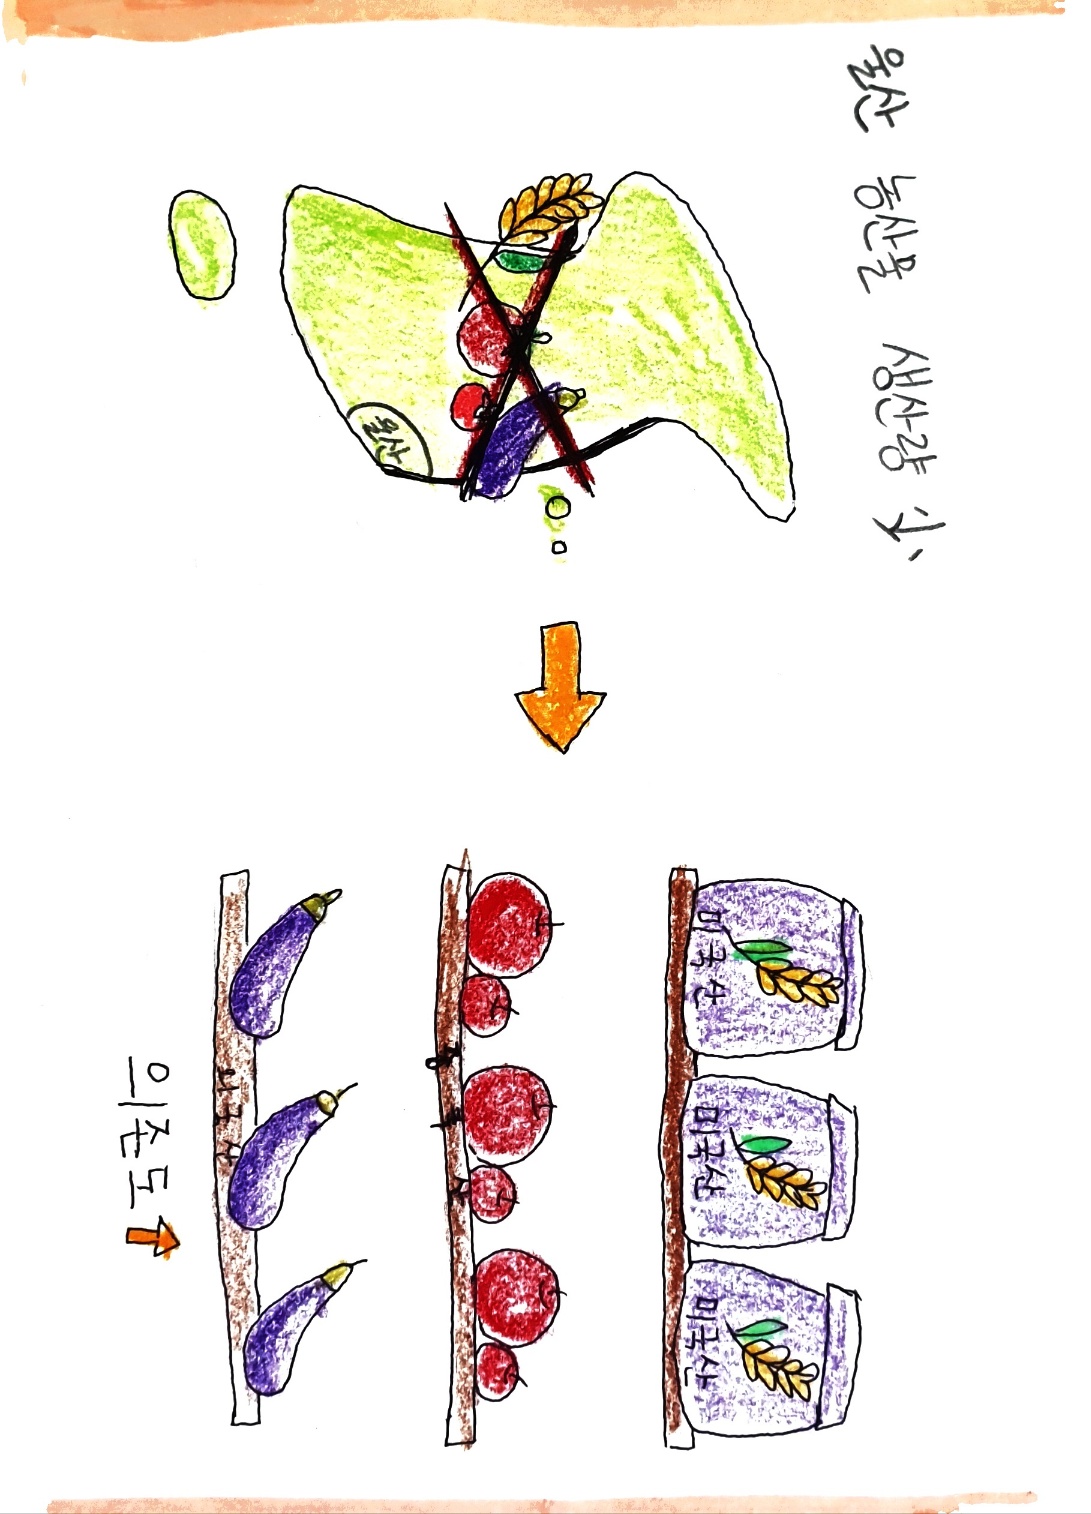 울산 농산물 생산량
울산
미국산 미국산 미국산
중국산
의존도